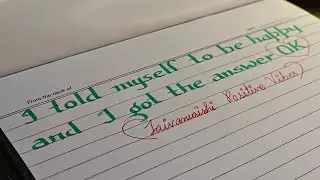 From the desk of
I told myself to be happy
and I got the answer OK
Positive Vibes